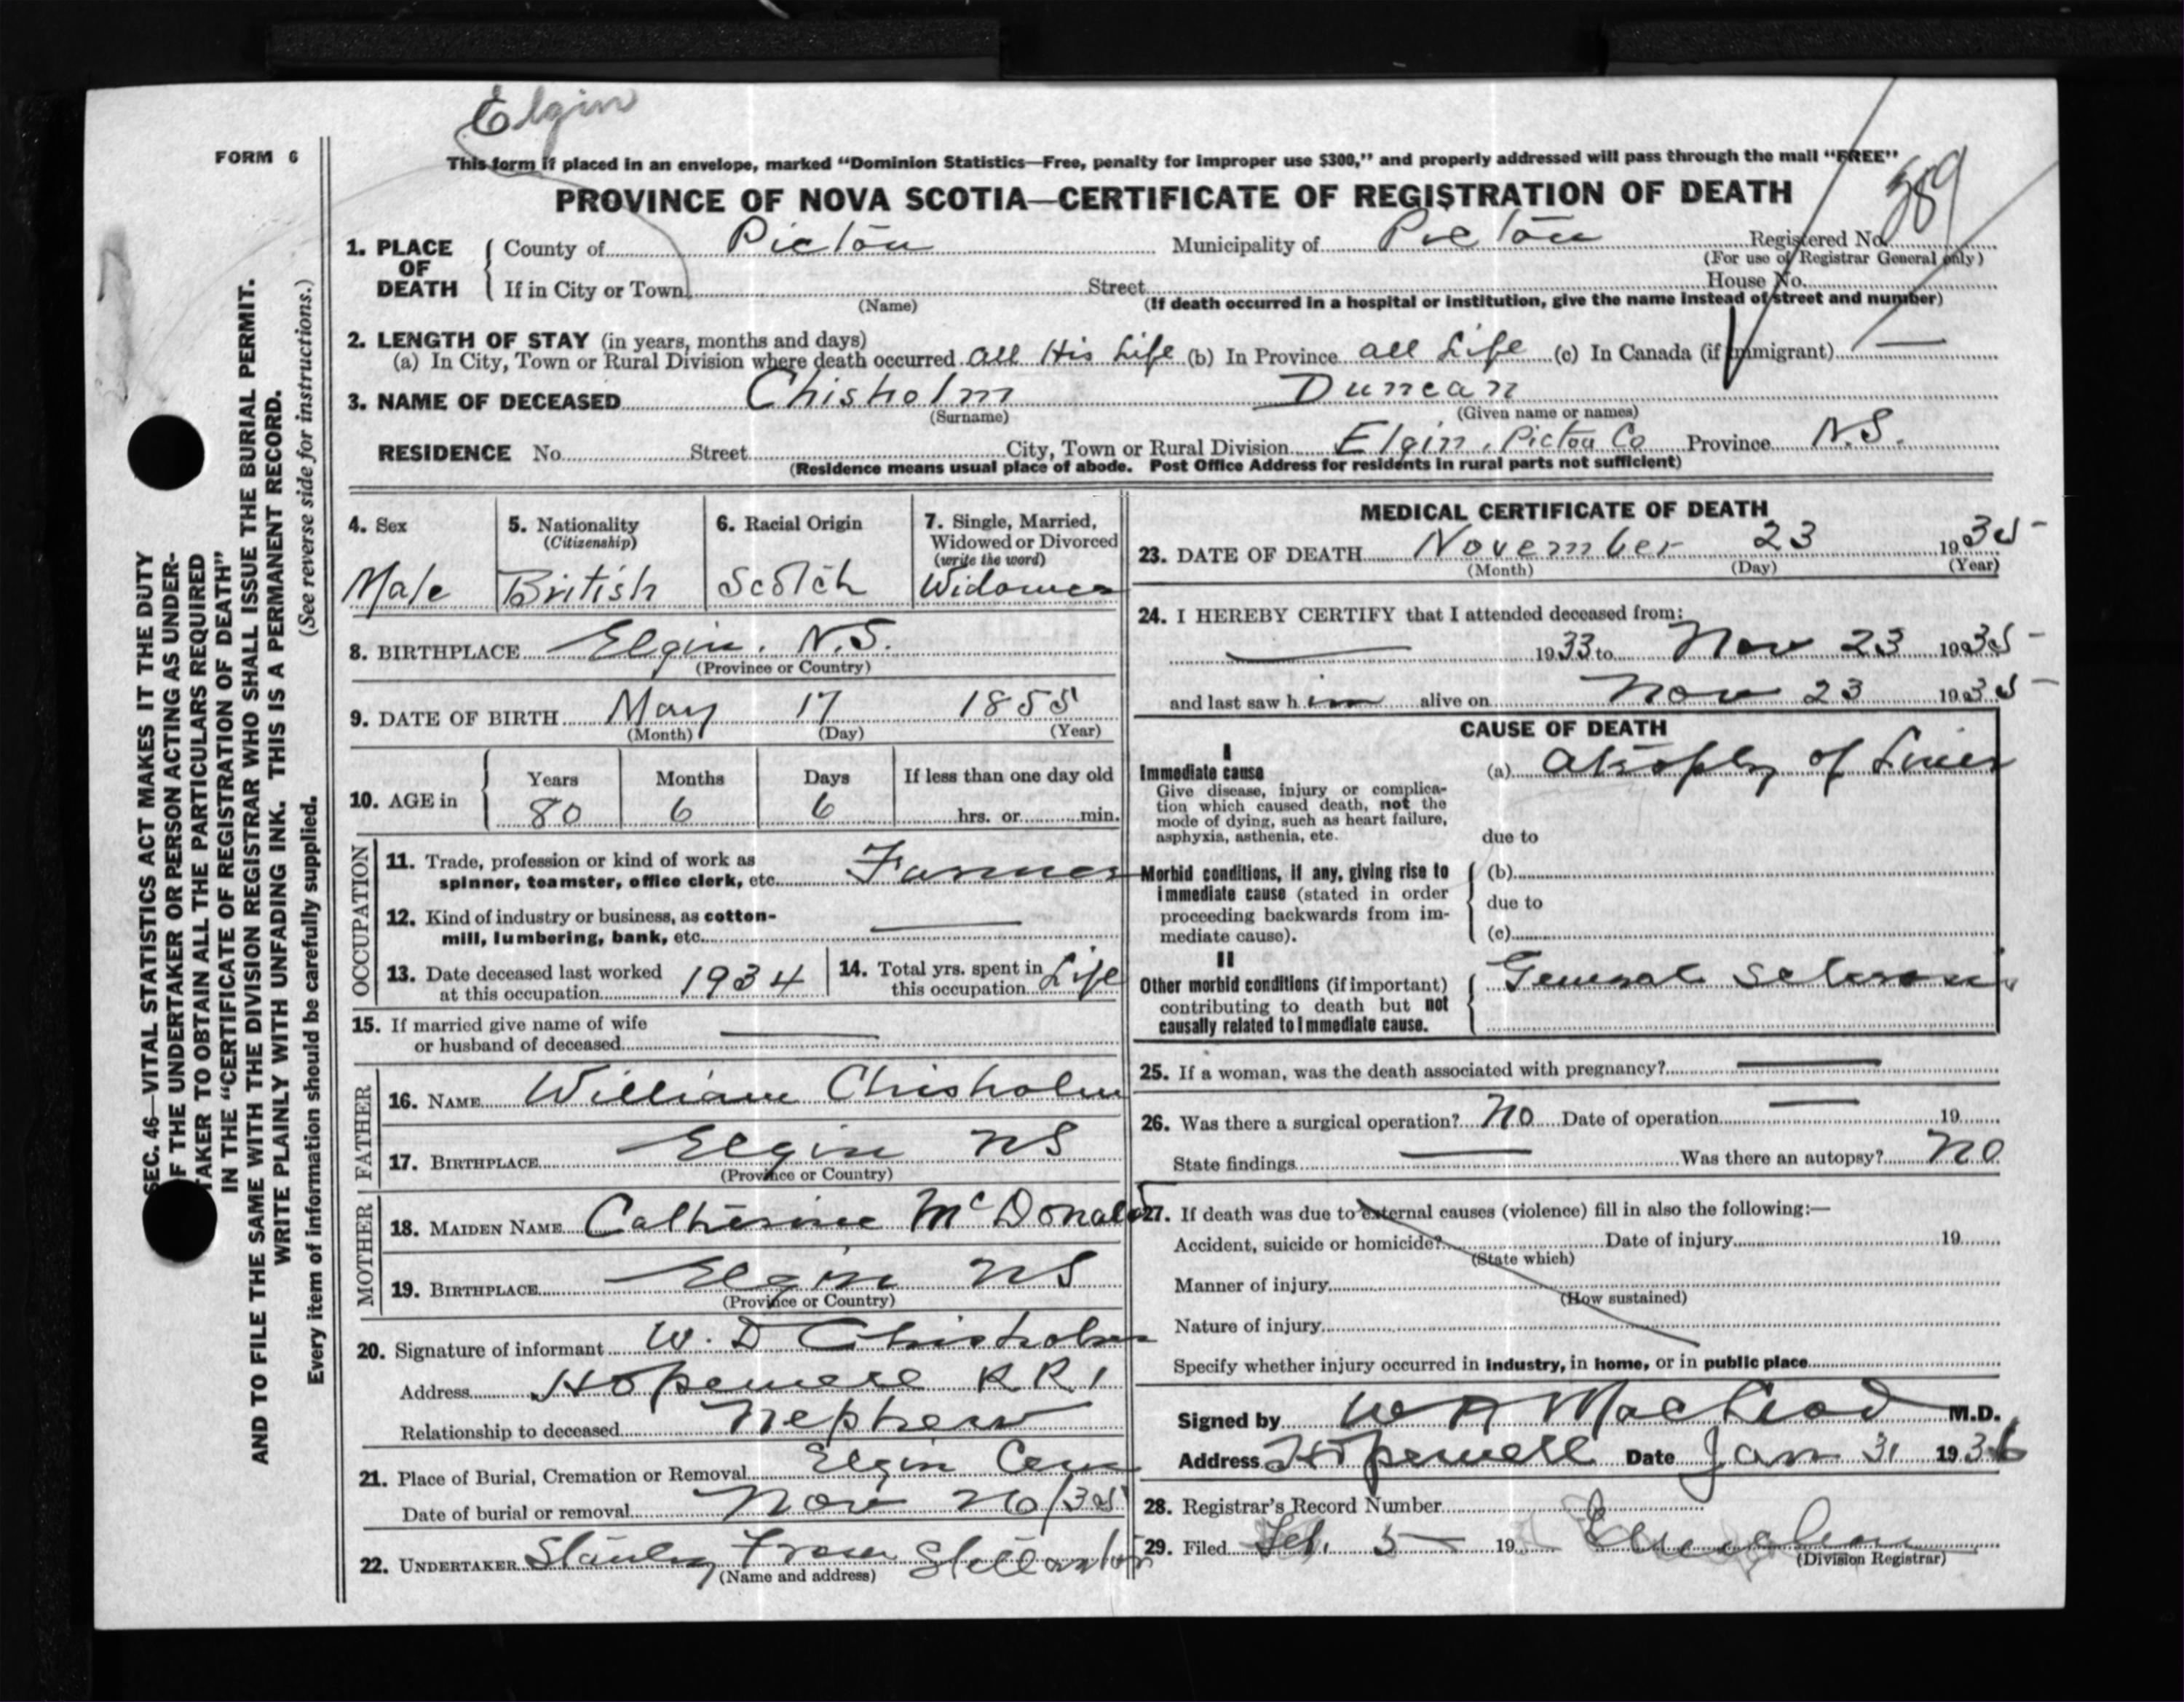 Elgin
FORM 6
This form if placed in an envelope, marked “Dominion Statistics—Free, penalty for improper use $300,” and properly addressed will pass through the mail “FREE”
PROVINCE OF NOVA SCOTIA—CERTIFICATE OF REGISTRATION OF DEATH
389
1. PLACE OF DEATH
County of Pictou Municipality of Pictou Registered No.
(For use of Registrar General only)
If in City or Town Street House No.
(Name) (If death occurred in a hospital or institution, give the name instead of street and number)
2. LENGTH OF STAY (in years, months and days)
(a) In City, Town or Rural Division where death occurred all His Life (b) In Province all Life (c) In Canada (if immigrant) —
3. NAME OF DECEASED Chisholm Duncan
(Surname) (Given name or names)
RESIDENCE No. Street City, Town or Rural Division Elgin, Pictou Co Province N.S.
(Residence means usual place of abode. Post Office Address for residents in rural parts not sufficient)
4. Sex
Male
5. Nationality
(Citizenship)
British
6. Racial Origin
Scotch
7. Single, Married,
Widowed or Divorced
(write the word)
Widower
8. BIRTHPLACE Elgin. N.S.
(Province or Country)
9. DATE OF BIRTH May 17 1855
(Month) (Day) (Year)
10. AGE in
Years Months Days If less than one day old
80 6 6 hrs. or min.
OCCUPATION
11. Trade, profession or kind of work as
spinner, teamster, office clerk, etc. Farmer
12. Kind of industry or business, as cotton-
mill, lumbering, bank, etc. —
13. Date deceased last worked
at this occupation 1934
14. Total yrs. spent in
this occupation Life
15. If married give name of wife
or husband of deceased —
FATHER
16. NAME William Chisholm
17. BIRTHPLACE Elgin NS
(Province or Country)
MOTHER
18. MAIDEN NAME Catherine McDonald
19. BIRTHPLACE Elgin NS
(Province or Country)
20. Signature of informant W. D Chisholm
Address Hopewell R R 1
Relationship to deceased Nephew
21. Place of Burial, Cremation or Removal Elgin Cem
Date of burial or removal Nov 26/35
22. UNDERTAKER Stanley Fraser Stellarton
(Name and address)
MEDICAL CERTIFICATE OF DEATH
23. DATE OF DEATH November 23 1935
(Month) (Day) (Year)
24. I HEREBY CERTIFY that I attended deceased from:
— 1933 to Nov 23 1935
and last saw him alive on Nov 23 1935
CAUSE OF DEATH
I
Immediate cause
Give disease, injury or complica-
tion which caused death, not the
mode of dying, such as heart failure,
asphyxia, asthenia, etc.
(a) Atrophy of Liver
due to
Morbid conditions, if any, giving rise to
immediate cause (stated in order
proceeding backwards from im-
mediate cause).
(b)
due to
(c)
II
Other morbid conditions (if important)
contributing to death but not
causally related to immediate cause.
General Sclerosis
25. If a woman, was the death associated with pregnancy? —
26. Was there a surgical operation? No Date of operation — 19
State findings — Was there an autopsy? No
27. If death was due to external causes (violence) fill in also the following:—
Accident, suicide or homicide? Date of injury 19
(State which)
Manner of injury
(How sustained)
Nature of injury
Specify whether injury occurred in industry, in home, or in public place
Signed by W A MacLeod M.D.
Address Hopewell Date Jan 31 1936
28. Registrar's Record Number
29. Filed Feb. 5 19
(Division Registrar)
SEC. 46—VITAL STATISTICS ACT MAKES IT THE DUTY
OF THE UNDERTAKER OR PERSON ACTING AS UNDER-
TAKER TO OBTAIN ALL THE PARTICULARS REQUIRED
IN THE “CERTIFICATE OF REGISTRATION OF DEATH”
AND TO FILE THE SAME WITH THE DIVISION REGISTRAR WHO SHALL ISSUE THE BURIAL PERMIT.
WRITE PLAINLY WITH UNFADING INK. THIS IS A PERMANENT RECORD.
(See reverse side for instructions.)
Every item of information should be carefully supplied.